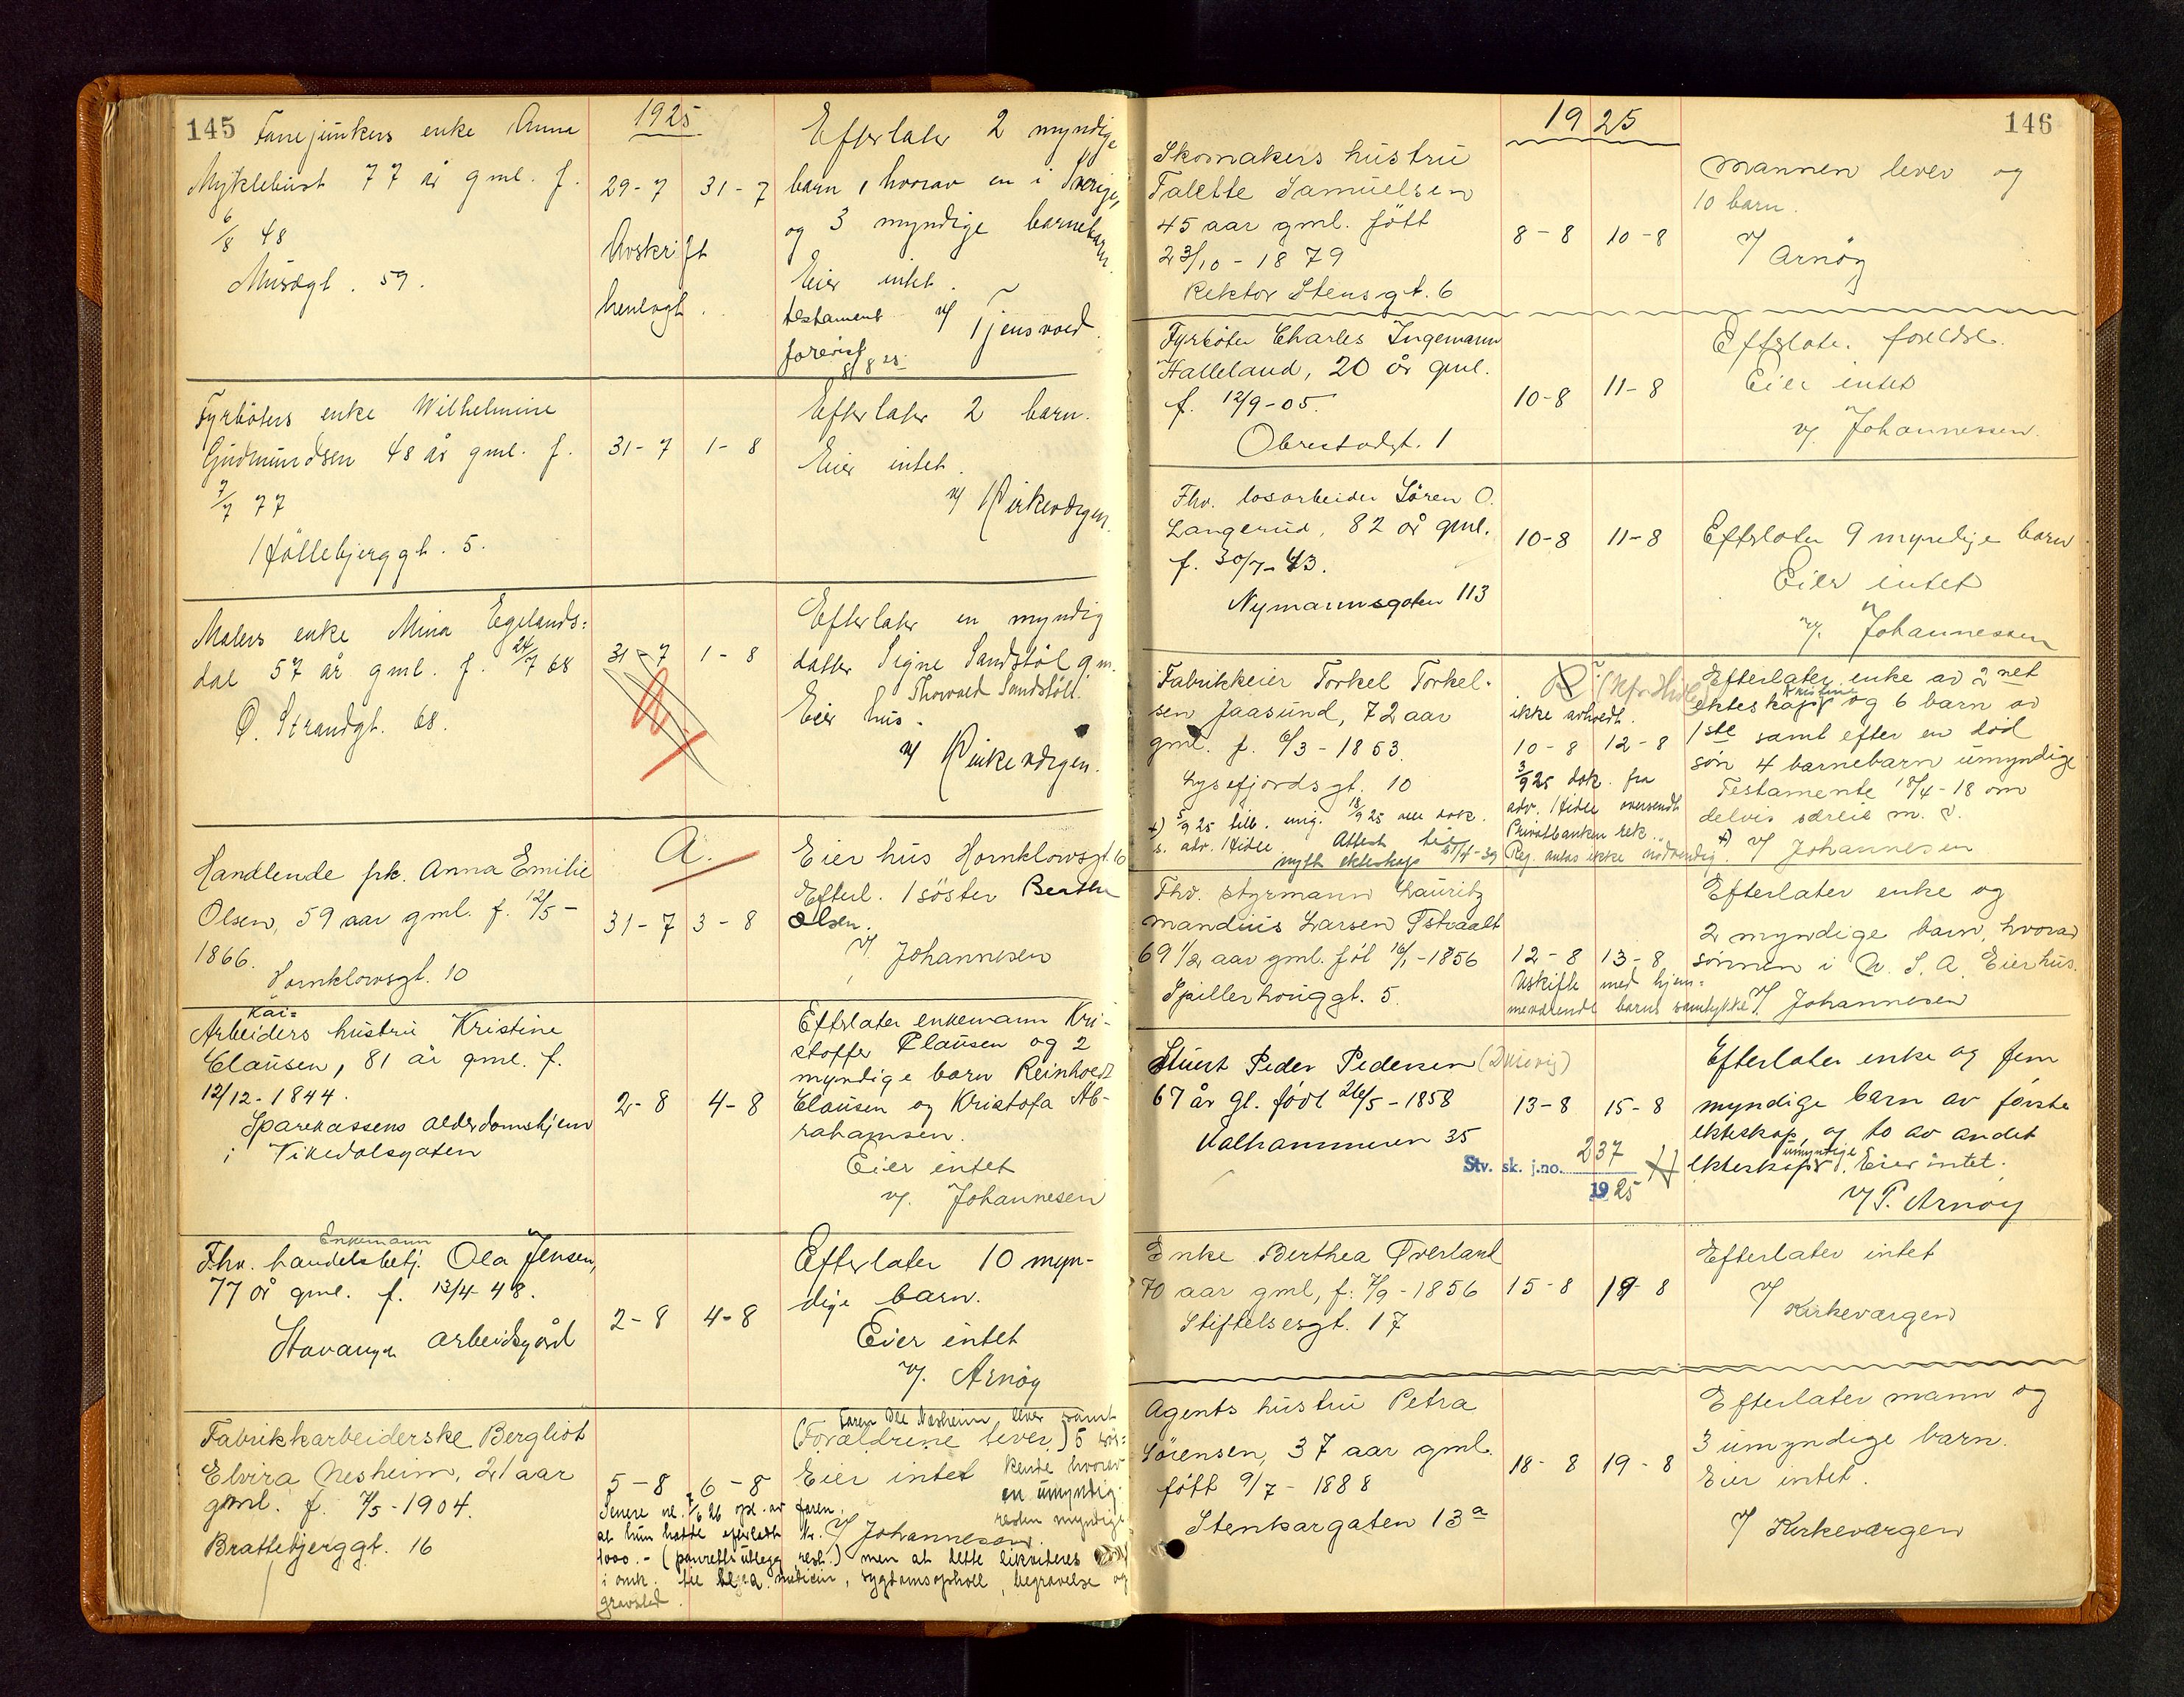 145
1925
Fanejunkers enke Anna
Myklebust 77 år gml. f.
6/8 48
Muségt. 59.
29-7 31-7
Avskrift
henlagt.
Efterlater 2 myndige
barn, hvorav en i Sverige,
og 3 myndige barnebarn.
Eier intet.
testament v/ Tjensvold
forevist
8/8 25.
Fyrbøters enke Wilhelmine
Gudmundsen 48 år gml. f.
7/7 77
Høllebjerggt. 5.
31-7 1-8
Efterlater 2 barn.
Eier intet.
v/ Kirkevergen.
Malers enke Mina Egelands=
dal 57 år gml. f. 24/7 68
Ø. Strandgt. 68.
31-7 1-8
Efterlater en myndig
datter Signe Sandstöl gm.
Thorvald Sandstöll.
Eier hus.
v/ Kirkevergen.
Handlende frk. Anna Emilie
Olsen, 59 aar gml. f. 12/5-
1866.
Hornklovsgt. 10
A.
31-7 3-8
Eier hus Hornklovsgt. 10
Efterl. 1 söster Berthe
Olsen.
v/ Johannesen
Kai=
Arbeiders hustru Kristine
Clausen, 81 år gml. f.
12/12-1844.
Sparekassens alderdomshjem
i Vikedalsgaten
2-8 4-8
Efterlater enkemann Kri-
stoffer Clausen og 2
myndige barn Reinholdt
Clausen og Kristofa Ab-
rahamsen.
Eier intet
v/. Johannesen
Enkemann
Fhv. handelsbetj. Ola Jensen,
77 år gml. f. 13/4-48.
Stavanger arbeidsgård
2-8 4-8
Efterlater 10 myn-
dige barn.
Eier intet
v/. Arnøy
Fabrikkarbeiderske Bergliot
Elvira Nesheim, 21 aar
gml. f. 7/5-1904.
Brattebjerggt. 16
5-8 6-8
Faren Ole Nesheim lever samt
(Forældrene lever.) 5 søs=
kende hvorav
en umyndig.
resten myndige
Eier intet
v/ Johannesen.
Senere opl. av faren,
at hun hadde efterladt kr.
1000.- ( rest.) men at dette likvideres
i til læge medicin, sygdomsophold, begravelse og
gravsted.
146
1925
Skomakers hustru
Talette Samuelsen
45 aar gml. født
23/10-1879
Rektor Stensgt. 6
8-8 10-8
Mannen lever og
10 barn.
v/ Arnøy
Fyrbøter Charles Ingemann
Halleland, 20 år gml.
f. 12/9-05.
Obrestadgt. 1
10-8 11-8
Efterlate. foreldre.
Eier intet
v/. Johannessen.
Fhv. losarbeider Sören O.
Langerud, 82 år gml.
f. 30/7-43.
Nymannsgaten 113
10-8 11-8
Efterlater 9 myndige barn
Eier intet
v/. Johannessen
Fabrikkeier Torkel Torkel-
sen Jaasund, 72 aar
gml. f. 6/3-1853.
Lysefjordsgt. 10
ikke avholdt.
10-8 12-8
3/9 25 dok. fra
adv. Hidle oversendt
Privatbanken rek..
Reg. antas ikke nødvendig.
Efterlater enke av 2net
ekteskap Kristine og 6 barn av
1ste samt efter en död
søn 4 barnebarn umyndige
Testamente 18/4-18 om
delvis særeie m. v.
x) v/ Johannesen
x) 5/9 25 tilb. 18/9 25 alle dok.
s. adv. Hidle. Attest til
nytt ekteskap
Fhv. styrmann Lauritz
Mandius Larsen Tstraalt
69 1/2 aar gml. föt 16/1-1856
Spillerhouggt. 5.
12-8 13-8
Uskifte med hjem=
meværende barns samtykke
Efterlater enke og
2 myndige barn, hvorav
sønnen i U. S. A. Eier hus.
v/ Johannesen
Stuert Peder Pedersen (Dusevig)
67 år gl. født 26/5-1858
Valhammeren 35
13-8 15-8
Stv. sk. j.no. 237
1925
Efterlater enke og fem
myndige barn av første
ekteskap, og to av andet
umyndige
ekteskap. Eier intet.
v/ P. Arnøy
Enke Berthea Tverland
70 aar gml, f. 7/9-1856
Stiftelsesgt. 17
15-8 19-8
Efterlater intet
v/ Kirkevergen
Agents hustru Petra
Sörensen, 37 aar gml.
født 9/7-1888
Stenkargaten 13a
18-8 19-8
Efterlater mann og
3 umyndige barn.
Eier intet.
v/ Kirkevergen